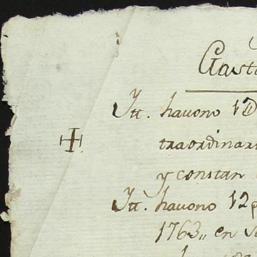 Gast
Itt. havono 1
traordinari
y constan
Itt. havono 12
1763,, en